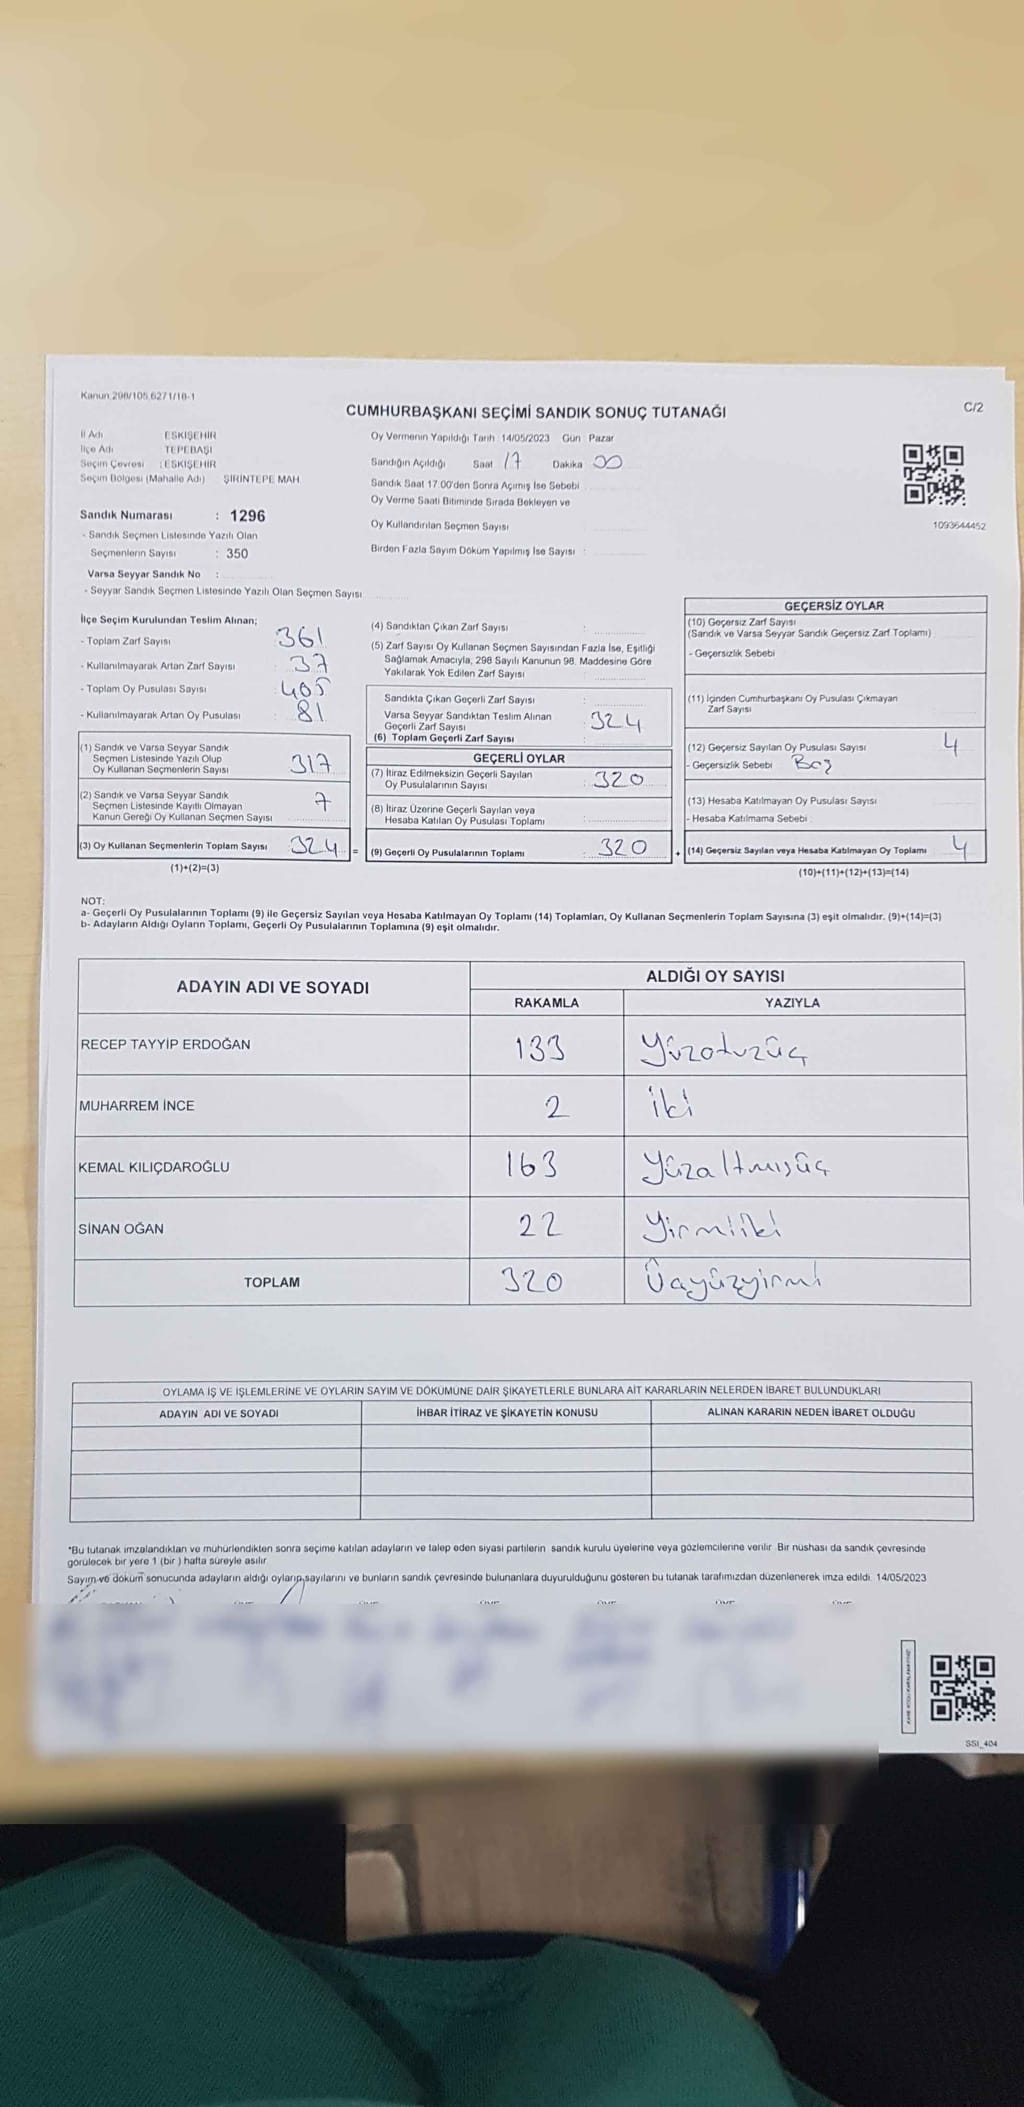 Kanun 298/105,6271/18-1
CUMHURBAŞKANI SEÇİMİ SANDIK SONUÇ TUTANAĞI
C/2
İl Adı ESKİŞEHİR
İlçe Adı TEPEBAŞI
Seçim Çevresi : ESKİŞEHİR
Seçim Bölgesi (Mahalle Adı) ŞİRİNTEPE MAH
Oy Vermenin Yapıldığı Tarih 14/05/2023 Gün Pazar
Sandığın Açıldığı Saat 17 Dakika 00
Sandık Saat 17.00'den Sonra Açımış İse Sebebi
Oy Verme Saati Bitiminde Sırada Bekleyen ve
Oy Kullandırılan Seçmen Sayısı
Birden Fazla Sayım Döküm Yapılmış İse Sayısı :
1093644452
Sandık Numarası : 1296
- Sandık Seçmen Listesinde Yazılı Olan
Seçmenlerin Sayısı : 350
Varsa Seyyar Sandık No :
- Seyyar Sandık Seçmen Listesinde Yazılı Olan Seçmen Sayısı
İlçe Seçim Kurulundan Teslim Alınan;
- Toplam Zarf Sayısı 361
- Kullanılmayarak Artan Zarf Sayısı : 37
- Toplam Oy Pusulası Sayısı : 405
- Kullanılmayarak Artan Oy Pusulası : 81
(1) Sandık ve Varsa Seyyar Sandık
Seçmen Listesinde Yazılı Olup
Oy Kullanan Seçmenlerin Sayısı 317
(2) Sandık ve Varsa Seyyar Sandık
Seçmen Listesinde Kayıtlı Olmayan
Kanun Gereği Oy Kullanan Seçmen Sayısı 7
(3) Oy Kullanan Seçmenlerin Toplam Sayısı 324 =
(1)+(2)=(3)
(4) Sandıktan Çıkan Zarf Sayısı :
(5) Zarf Sayısı Oy Kullanan Seçmen Sayısından Fazla İse, Eşitliği
Sağlamak Amacıyla, 298 Sayılı Kanunun 98. Maddesine Göre
Yakılarak Yok Edilen Zarf Sayısı :
Sandıkta Çıkan Geçerli Zarf Sayısı :
Varsa Seyyar Sandıktan Teslim Alınan
Geçerli Zarf Sayısı
(6) Toplam Geçerli Zarf Sayısı : 324
GEÇERLİ OYLAR
(7) İtiraz Edilmeksizin Geçerli Sayılan
Oy Pusulalarının Sayısı : 320
(8) İtiraz Üzerine Geçerli Sayılan veya
Hesaba Katılan Oy Pusulası Toplamı :
(9) Geçerli Oy Pusulalarının Toplamı : 320 +
GEÇERSİZ OYLAR
(10) Geçersiz Zarf Sayısı
(Sandık ve Varsa Seyyar Sandık Geçersiz Zarf Toplamı)
- Geçersizlik Sebebi
(11) İçinden Cumhurbaşkanı Oy Pusulası Çıkmayan
Zarf Sayısı
(12) Geçersiz Sayılan Oy Pusulası Sayısı 4
- Geçersizlik Sebebi Boş
(13) Hesaba Katılmayan Oy Pusulası Sayısı
- Hesaba Katılmama Sebebi
(14) Geçersiz Sayılan veya Hesaba Katılmayan Oy Toplamı 4
(10)+(11)+(12)+(13)=(14)
NOT:
a- Geçerli Oy Pusulalarının Toplamı (9) ile Geçersiz Sayılan veya Hesaba Katılmayan Oy Toplamı (14) Toplamları, Oy Kullanan Seçmenlerin Toplam Sayısına (3) eşit olmalıdır. (9)+(14)=(3)
b- Adayların Aldığı Oyların Toplamı, Geçerli Oy Pusulalarının Toplamına (9) eşit olmalıdır.
ADAYIN ADI VE SOYADI ALDIĞI OY SAYISI
RAKAMLA YAZIYLA
RECEP TAYYİP ERDOĞAN 133 Yüzotuzüç
MUHARREM İNCE 2 iki
KEMAL KILIÇDAROĞLU 163 Yüzaltmışüç
SİNAN OĞAN 22 Yirmiiki
TOPLAM 320 Üçyüzyirmi
OYLAMA İŞ VE İŞLEMLERİNE VE OYLARIN SAYIM VE DÖKÜMÜNE DAİR ŞİKAYETLERLE BUNLARA AİT KARARLARIN NELERDEN İBARET BULUNDUKLARI
ADAYIN ADI VE SOYADI İHBAR İTİRAZ VE ŞİKAYETİN KONUSU ALINAN KARARIN NEDEN İBARET OLDUĞU
*Bu tutanak imzalandıktan ve mühürlendikten sonra seçime katılan adayların ve talep eden siyasi partilerin sandık kurulu üyelerine veya gözlemcilerine verilir. Bir nüshası da sandık çevresinde
görülecek bir yere 1 (bir ) hafta süreyle asılır
Sayım ve döküm sonucunda adayların aldığı oyların sayılarını ve bunların sandık çevresinde bulunanlara duyurulduğunu gösteren bu tutanak tarafımızdan düzenlenerek imza edildi. 14/05/2023
SSI_404